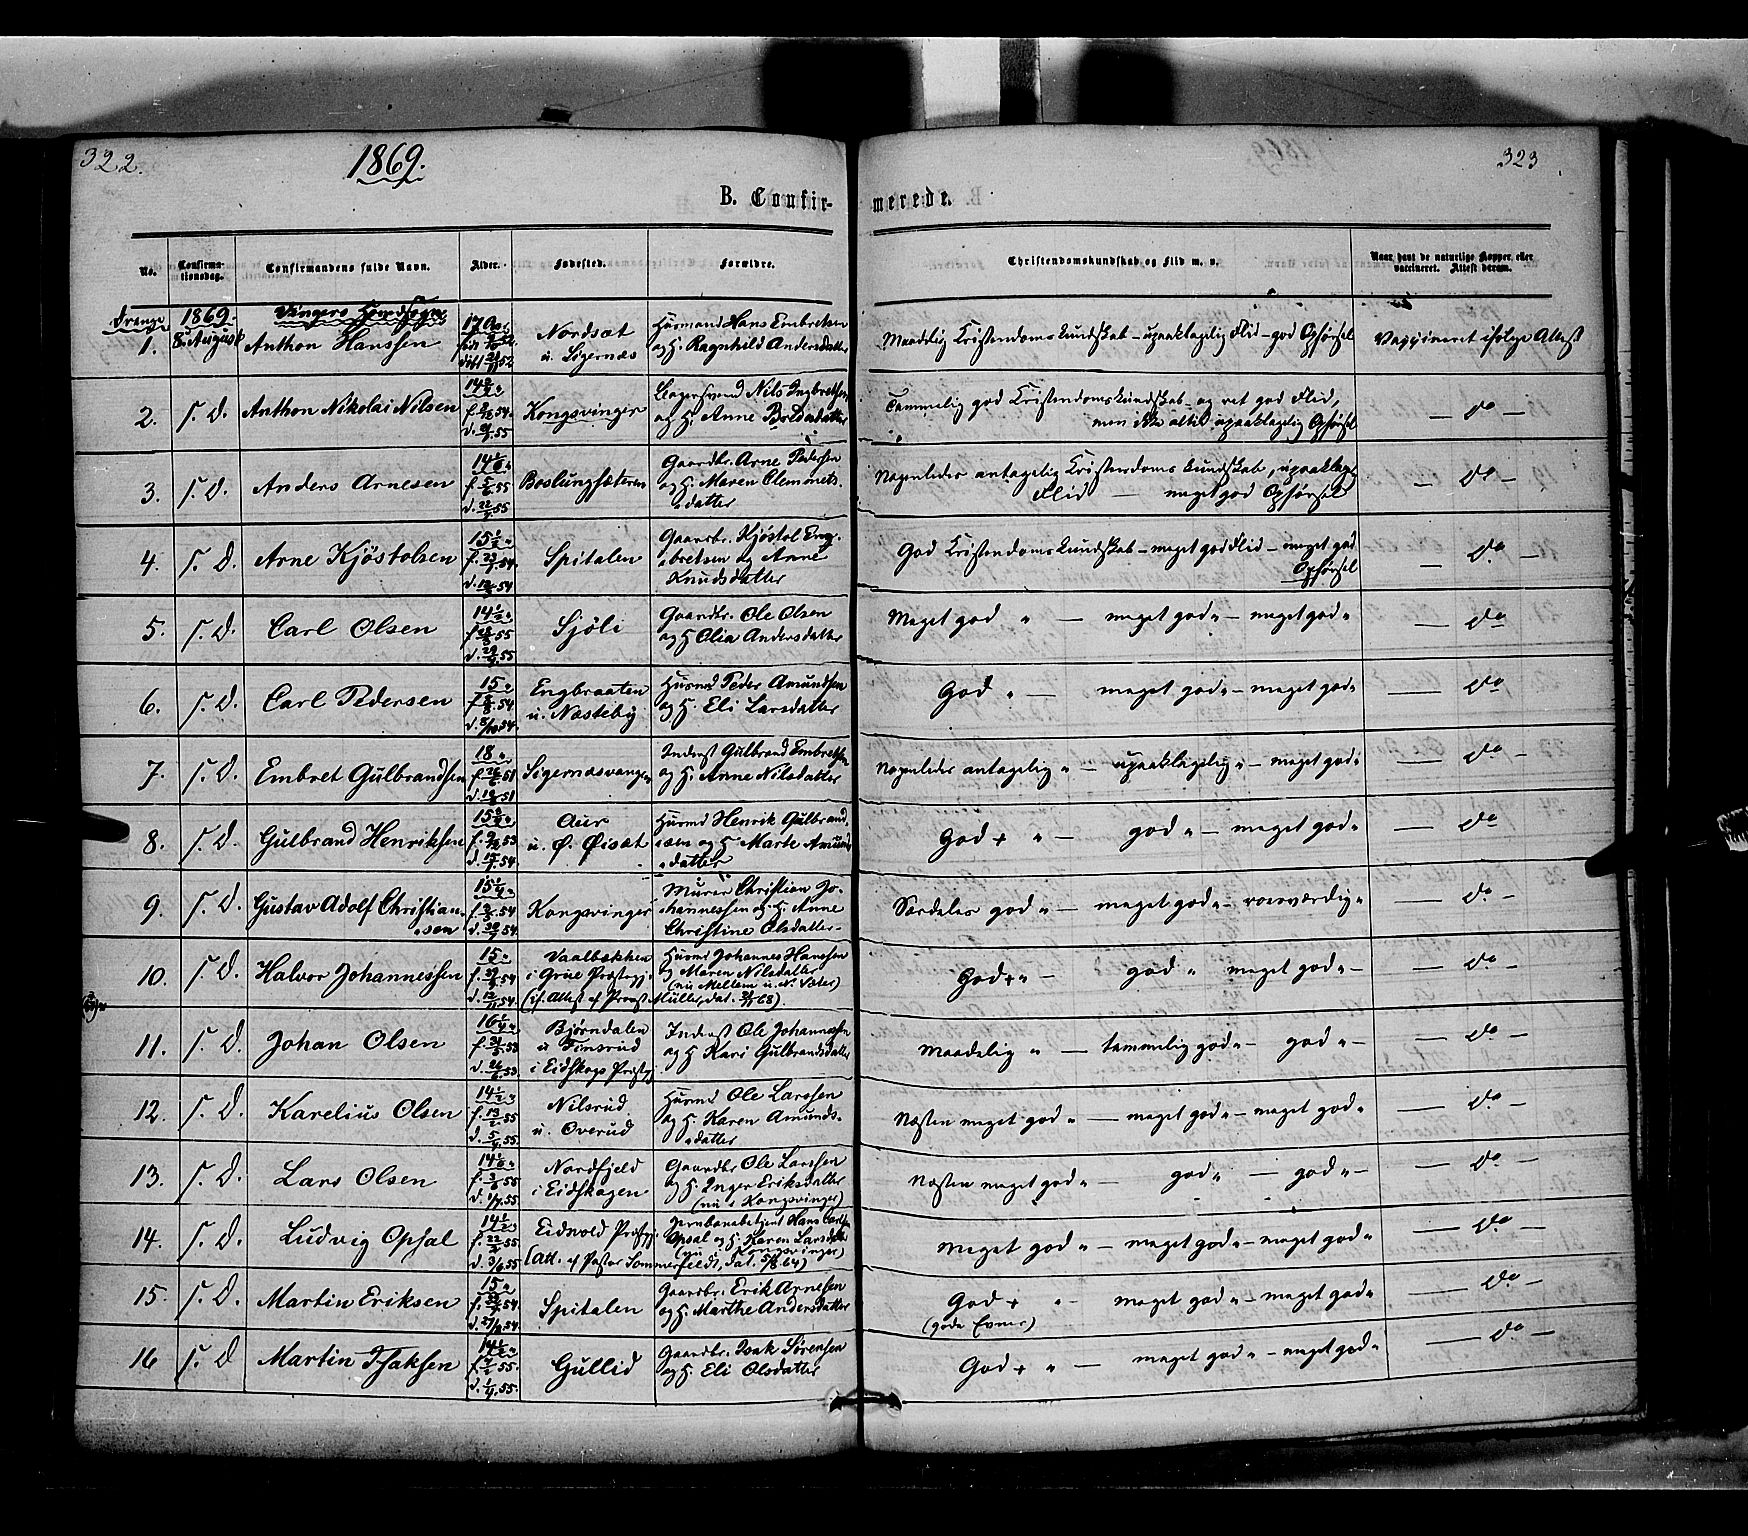 322.
1869.
323
B. Confir-
merede.
No.
Confirma-
tionsdag.
Confirmandens fulde Navn.
Alder.
Fødested.
Forældre.
Christendomskundskab og Flid m. v.
Naar havt de naturlige Kopper, eller
vaccineret. Attest derom.
Drenge
1869.
Vingers Hovedsogn
1. 8. August Anthon Hanssen 17 Nordsæt u. Sigernæs
Husmand Hans Embretsen
og H. Ragnhild Andersdatter
Maadelig Kristendomskundskab - upaaklagelig Flid - god Opførsel
Vaccineret ifølge Attest
2. s. D. Anthon Nikolai Nilsen Kongsvinger
Nils Ingbretsen
og H. Anne
Temmelig god Kristendomskundskab og ret god Flid,
men ikke altid upaaklagelig Opførsel
— do —
3. s. D. Anders Arnesen Boslungsæteren
Gaardbr. Arne Pedersen
og H. Maren Clemmets-
datter
Nogenledes antagelig Kristendomskundskab, upaaklag.
Flid — meget god Opførsel
— do —
4. s. D. Arne Kjöstolsen Spitalen
Gaardbr. Kjöstol Eng-
bretsen og Anne
Knudsdatter
God Kristendomskundskab - meget god Flid - meget god
Opførsel
— do —
5. s. D. Carl Olsen Sjöli
Gaardbr. Ole Olsen
og H. Olia Andersdatter
Meget god " — meget god " — meget god "
— do
6. s. D. Carl Pedersen 15 Engbraaten u. Næsteby
Husmd Peder Amundsen
og H. Eli Larsdatter
God " — meget god " — meget god "
— do
7. s. D. Embret Gulbrandsen 18 Sigernæsvangen
Inderst Gulbrand Embretsen
og H. Anne Nilsdatter
Nogenledes antagelig " — upaaklagelig " — meget god "
— do —
8. s. D. Gulbrand Henriksen Aur u. Ø. Øisæt
Husmd Henrik Gulbrand-
sen og H. Marte Amunds-
datter
God + " — god " — meget god "
— do
9. s. D. Gustav Adolf Christian-
sen
Kongsvinger
Murer Christian Jo-
hannessen og H. Anne
Christine Olsdatter
Særdeles god " — meget god " — roesværdig "
— do —
10. s. D. Halvor Johannessen 15 Vaalbækken
i Grue Præstegj.
(if. Attest af Provst Müller, dat. 68).
Husmd Johannes Hanssen
og Maren Nilsdatter
(nu Mellem u. N. Sæter)
God + " — god " meget god " —
— do —
11. s. D. Johan Olsen Bjørndalen
u Finsrud
i Eidskogs Præstgj.
Inderst Ole Johannessen
og H. Kari Gulbrandsdatter
Maadelig " — temmelig god " — god " —
— do —
12. s. D. Karelius Olsen Nilsrud
u. Overud
Husmd Ole Larssen
og H. Karen Amunds-
datter
Næsten meget god " — meget god " — meget god "
— do —
13. s. D. Lars Olsen Nordfjeld
i Eidskogen
Gaardbr Ole Larssen
og H. Inger Eriksdatter
(nu i Kongsvinger)
Næsten meget god " — god " — god " —
— do —
14. s. D. Ludvig Opsal Eidsvold Præstgj.
(Att. af Pastor Sommerfeldt, dat. 5/8 64)
Jernbanebetjent Hans Carlsen
Opsal og H. Karen Larsdatter
(nu i Kongsvinger)
Meget god " — meget god " — meget god "
— do —
15. s. D. Martin Eriksen 15 Spitalen
Gaardbr. Erik Arnesen
og H. Marthe Andersdatter
God + " — meget god " — meget god "
(gode Evner)
— do —
16 s. D Martin Isaksen Gullid
Gaardbr. Isak Sörensen
og H. Eli Olsdatter
God + " — meget god " — meget god "
— do —